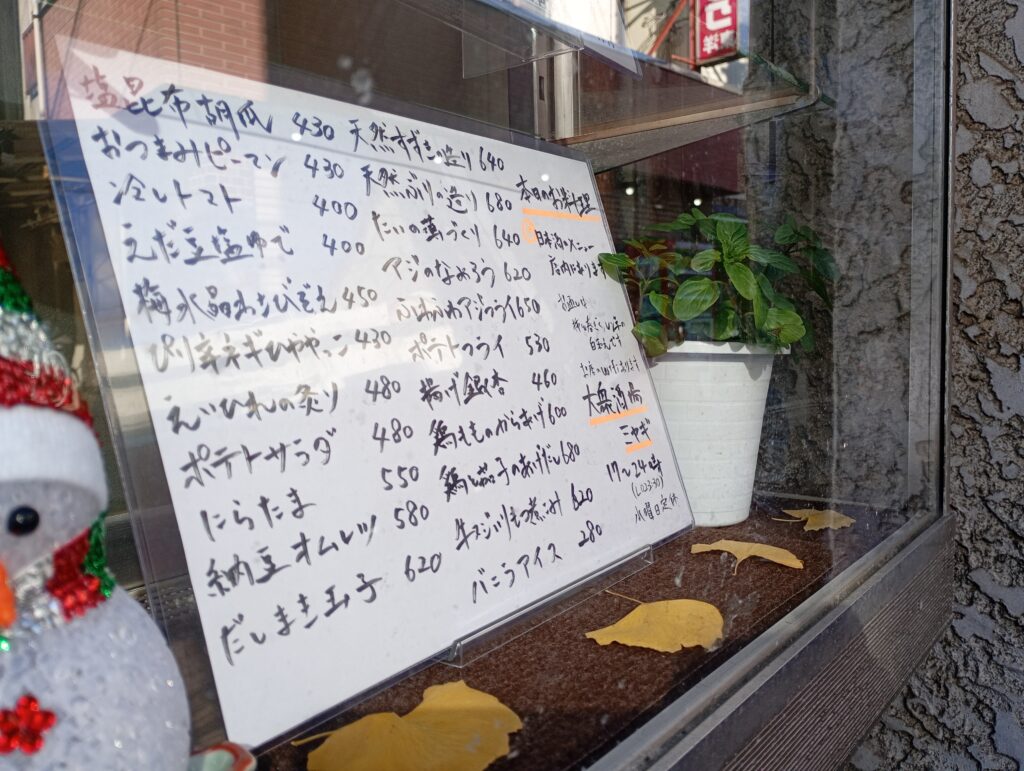 塩昆布胡瓜 430
おつまみピーマン 430
冷しトマト 400
えだ豆塩ゆで 400
梅水晶わさびぞえ 450
ぴり辛ネギひややっこ 430
えいひれの炙り 480
ポテトサラダ 480
にらたま 550
納豆オムレツ 580
だしまき玉子 620
天然すずき造り 640
天然ぶりの造り 680
たいの薄づくり 640
アジのなめろう 620
ふわふわアジフライ 650
ポテトフライ 530
揚げ銀杏 460
鶏ももからあげ 600
鶏と茄子のあげだし 680
牛スジ川もつ煮こみ 620
バニラアイス 280
本日のお料理
日本酒のメニュー
店内にあります
大衆酒場
ミヤギ
17〜24時
(L.O23:30)
水曜日定休